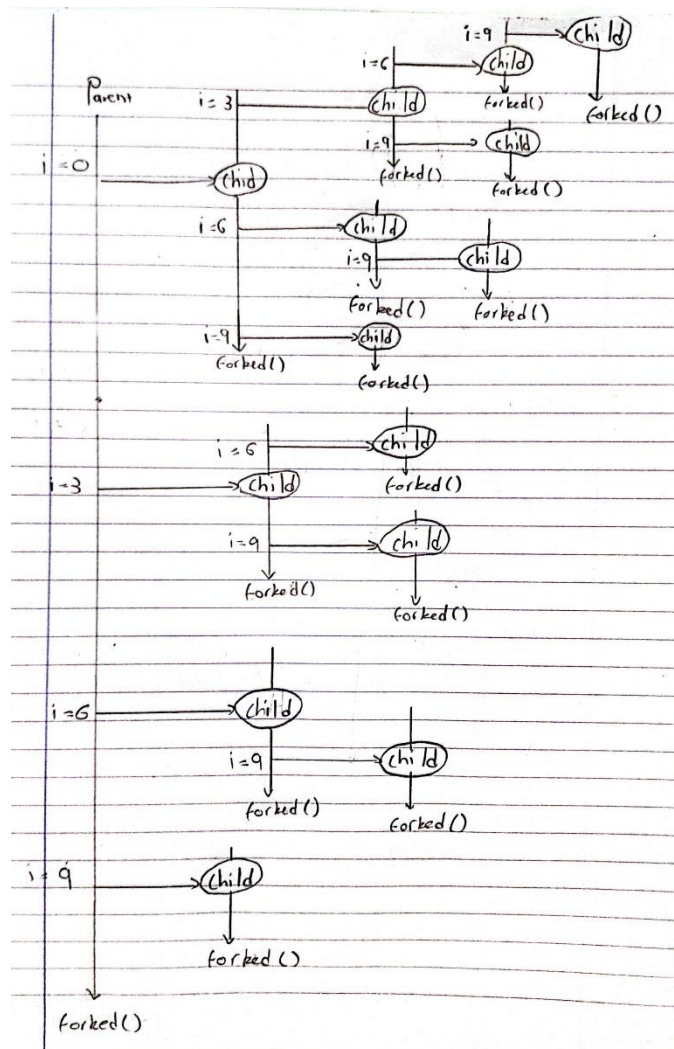 i=9 child
i=6 child
Parent i=3 child forked() forked()
i=9 child
i=0 chid forked() forked()
i=6 child
i=9 child
forked() forked()
i=9 child
forked() forked()
i=6 child
i=3 child forked()
i=9 child
forked() forked()
i=6 child
i=9 child
forked() forked()
i=9 child
forked()
forked()